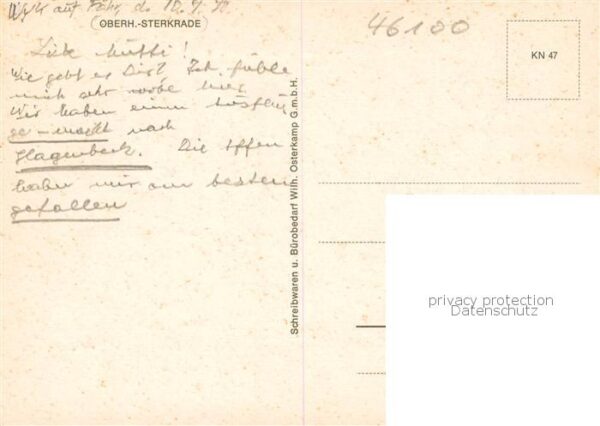 Wyk auf Föhr, d. 10.7.72
(OBERH.-STERKRADE)
Liebe Mutti!
Wie geht es Dir? Ich fühle
mich sehr wohl hier.
Wir haben einen Ausflug
ge-macht nach
Hagenbeck. Die Affen
haben mir am besten
gefallen
46100
KN 47
Schreibwaren u. Bürobedarf Wilh. Osterkamp G.m.b.H.
privacy protection
Datenschutz